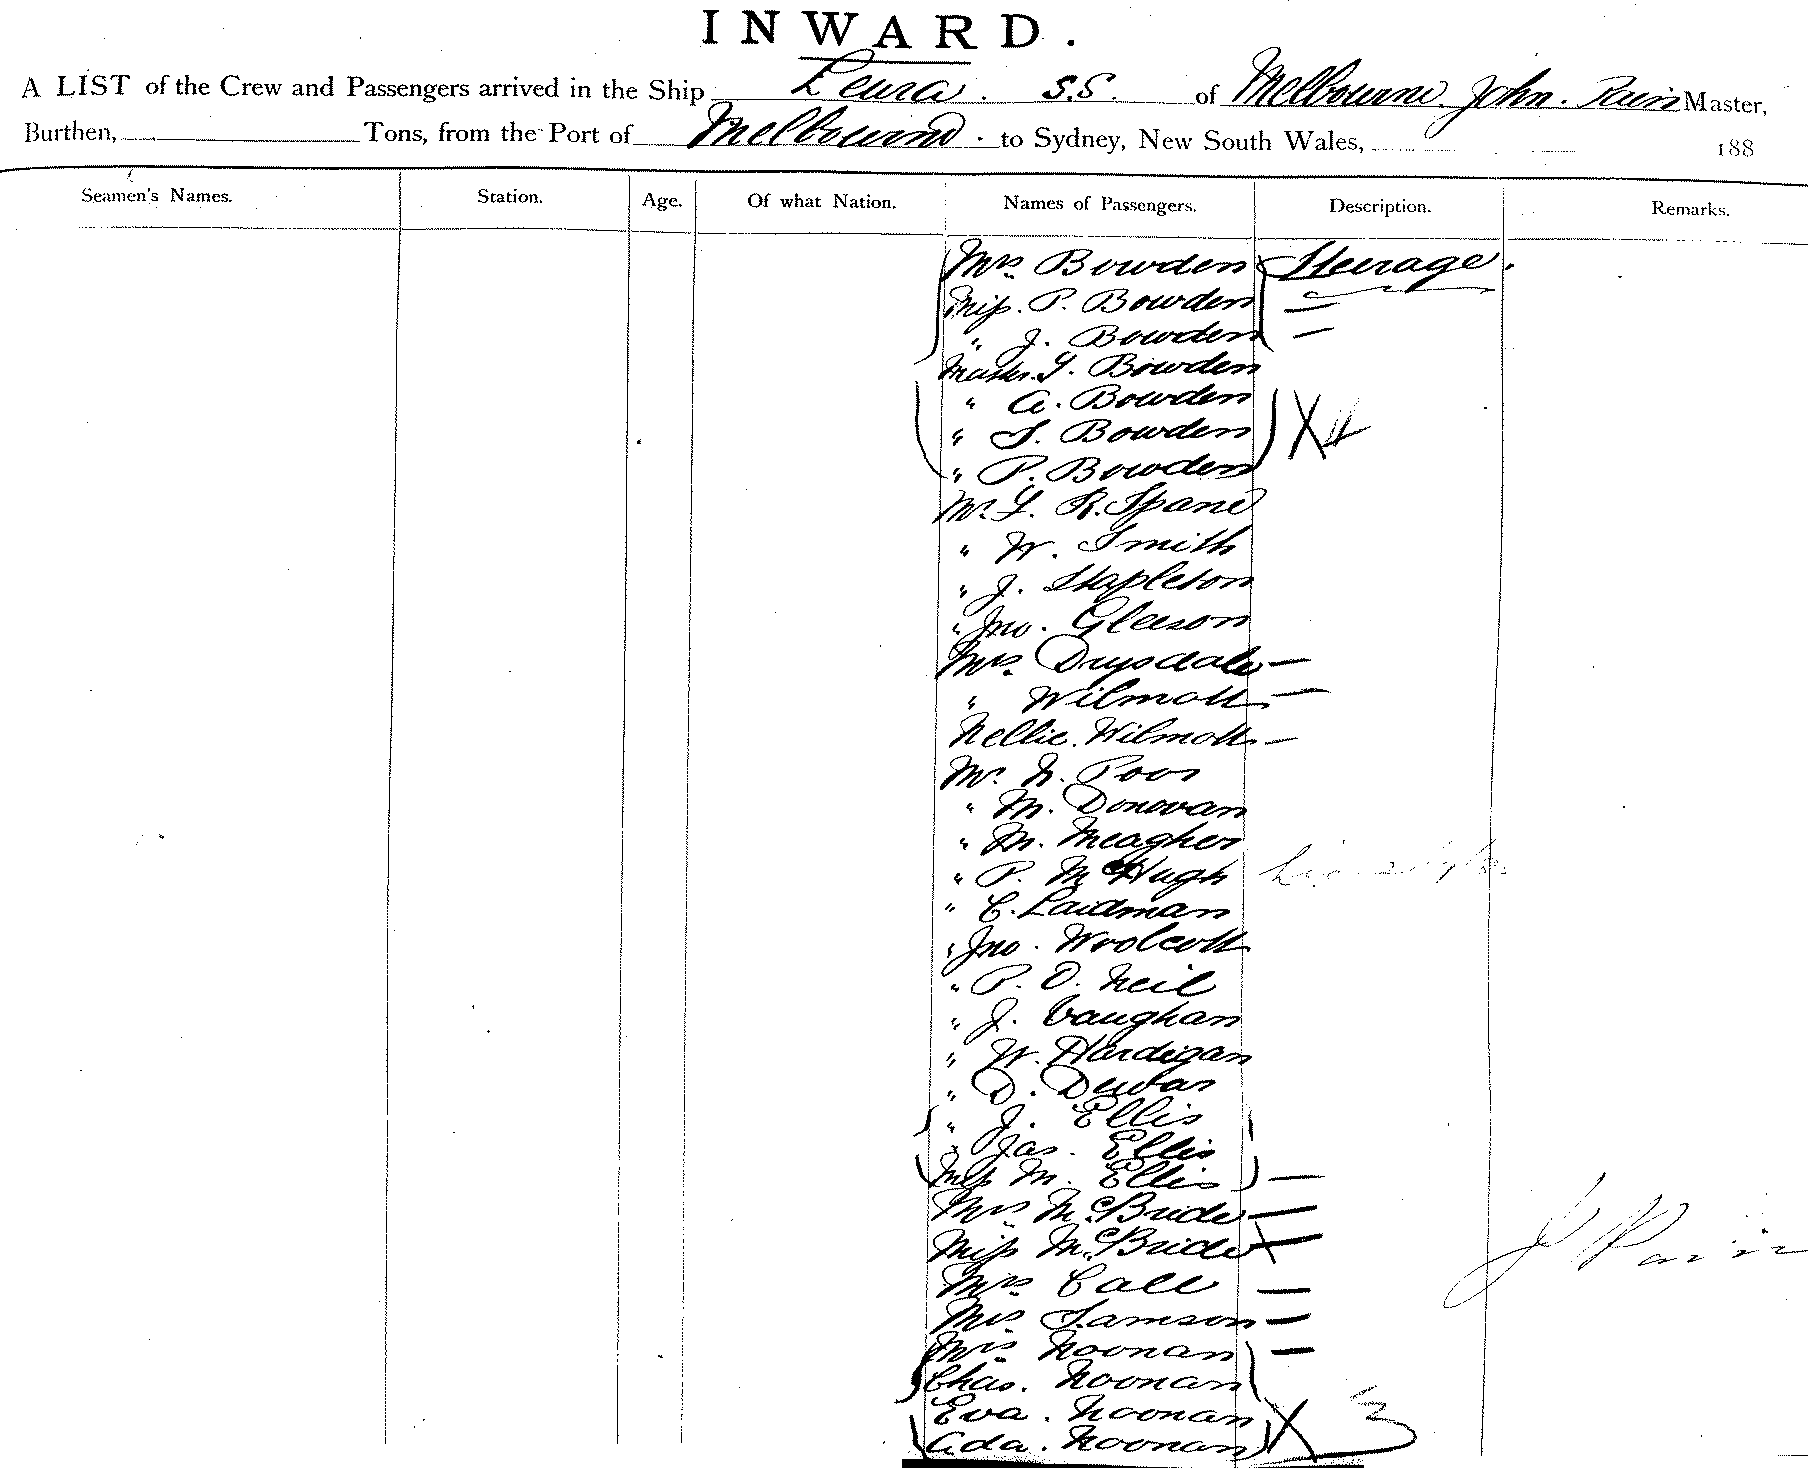 INWARD.
A LIST of the Crew and Passengers arrived in the Ship Leura. S.S. of Melbourne. John. Master,
Burthen, Tons, from the Port of Melbourne. to Sydney, New South Wales, 188
Seamen's Names. Station. Age. Of what Nation. Names of Passengers. Description. Remarks.
Mrs. Bowden Steerage.
Miss. P. Bowden —
" J. Bowden —
Master. G. Bowden
" A. Bowden
" S. Bowden X 4
" P. Bowden
Mr. R.
" W. Smith
" J. Stapleton
" Jno. Gleeson
Mrs. Drysdale —
" Wilmott —
Nellie. Wilmott —
Mr. N. Poor
" M. Donovan
" M. Meagher
" P. McHugh
" C. Laidman
" Jno. Woolcott
" P. O. Neil
" J. Vaughan
" W. Hardigan
" D. Dewar
" J. Ellis
" Jas. Ellis
Miss M. Ellis —
Mrs. McBride —
Miss McBride X
Mrs. Call —
Mrs. Samson —
Mrs. Noonan —
Chas. Noonan
Eva. Noonan X 3
Ada. Noonan